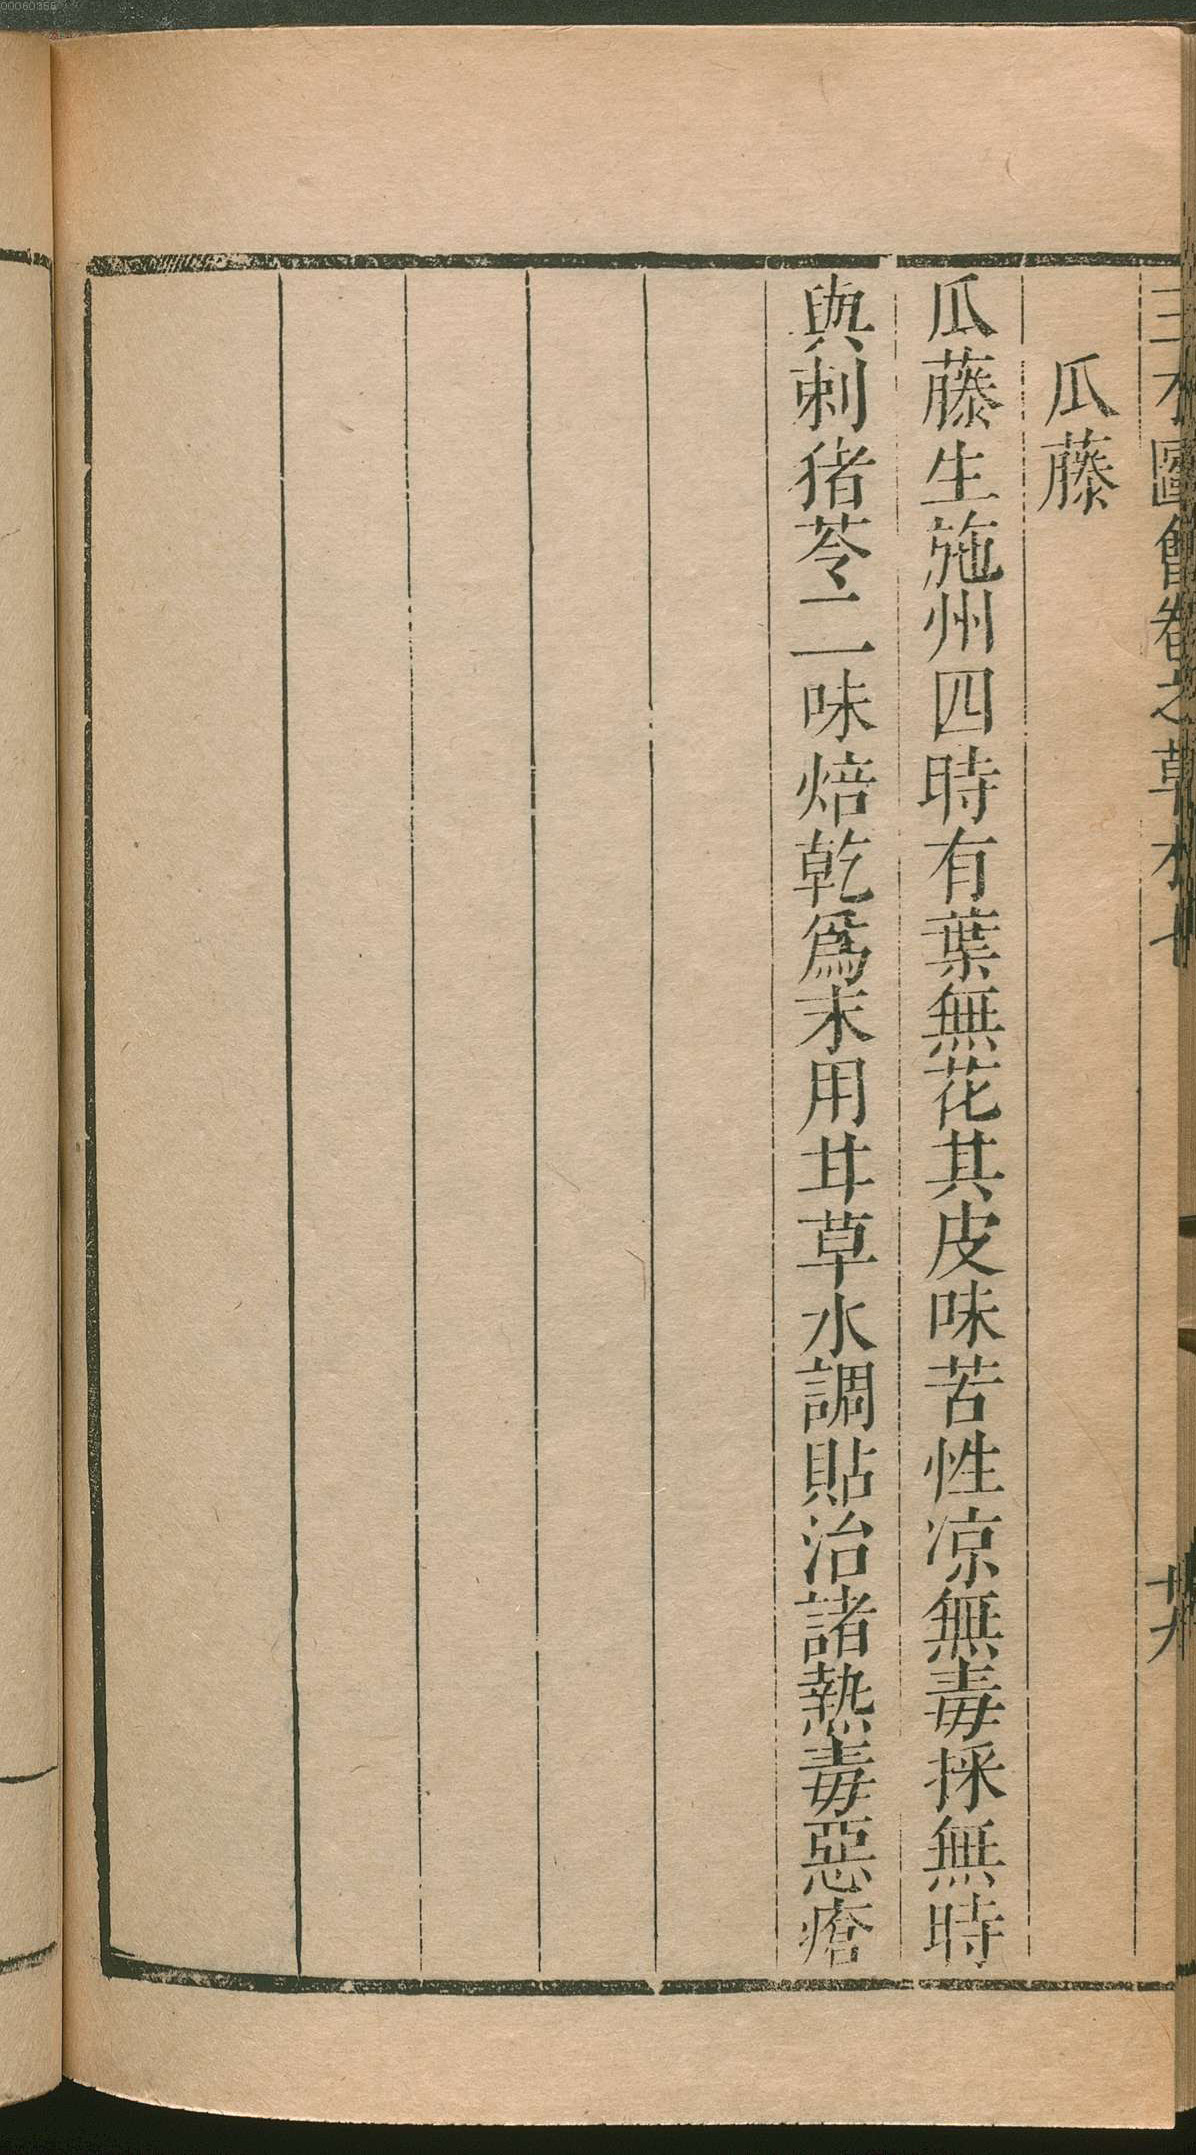 00060356
三才圖會卷之草木七 芄
瓜藤
瓜藤生施州四時有葉無花其皮味苦性凉無毒採無時
與刺猪苓二味焙乾爲末用甘草水調貼治諸熱毒惡瘡